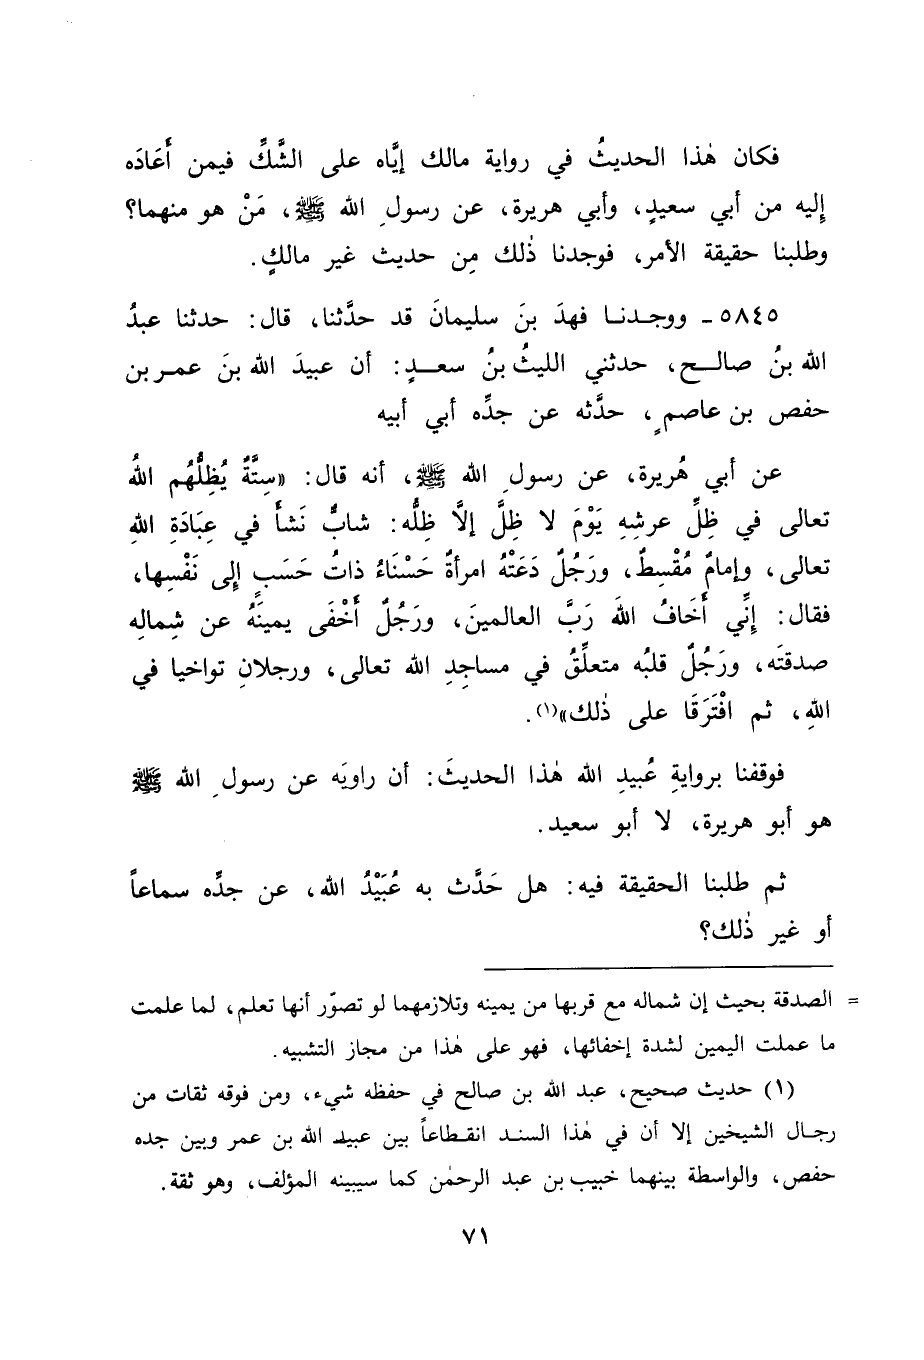 فكان هٰذا الحديثُ في رواية مالك إيَّاه على الشَّكِّ فيمن أَعَادَه
إليه من أبي سعيدٍ، وأبي هريرة، عن رسولِ الله ﷺ، مَنْ هو منهما؟
وطلبنا حقيقة الأمر، فوجدنا ذٰلك مِن حديث غير مالكٍ.
٥٨٤٥ ـ ووجدنا فهدَ بنَ سليمانَ قد حدَّثنا، قال: حدثنا عبدُ
الله بنُ صالح، حدثني الليثُ بنُ سعدٍ: أن عبيدَ الله بنَ عمر بن
حفص بن عاصمٍ، حدَّثه عن جدِّه أبي أبيه
عن أبي هُريرة، عن رسولِ الله ﷺ، أنه قال: «سِتَّةٌ يُظِلُّهُم اللهُ
تعالى في ظِلِّ عرشِهِ يَوْمَ لا ظِلَّ إلَّا ظِلُّه: شابٌّ نَشأَ في عِبَادَةِ اللهِ
تعالى، وإمامٌ مُقْسِطٌ، ورَجُلٌ دَعَتْهُ امرأةٌ حَسْنَاءُ ذاتُ حَسَبٍ إلى نَفْسِها،
فقال: إنِّي أَخَافُ اللهَ رَبَّ العالمينَ، ورَجُلٌ أَخْفَى يمينَهُ عن شِمالِهِ
صدقتَه، ورَجُلٌ قلبُه متعلِّقٌ في مساجِدِ الله تعالى، ورجلانِ تواخيا في
اللهِ، ثم افْتَرَقَا على ذٰلك»(١).
فوقفنا بروايةِ عُبيدِ الله هٰذا الحديثَ: أن راويَه عن رسولِ الله ﷺ
هو أبو هريرة، لا أبو سعيد.
ثم طلبنا الحقيقة فيه: هل حَدَّث به عُبَيْدُ الله، عن جدِّه سماعاً
أو غير ذٰلك؟
= الصدقة بحيث إن شماله مع قربها من يمينه وتلازمهما لو تصوّر أنها تعلم، لما علمت
ما عملت اليمين لشدة إخفائها، فهو على هٰذا من مجاز التشبيه.
(١) حديث صحيح، عبد الله بن صالح في حفظه شيء، ومن فوقه ثقات من
رجال الشيخين إلا أن في هٰذا السند انقطاعاً بين عبيد الله بن عمر وبين جده
حفص، والواسطة بينهما خبيب بن عبد الرحمٰن كما سيبينه المؤلف، وهو ثقة.
٧١